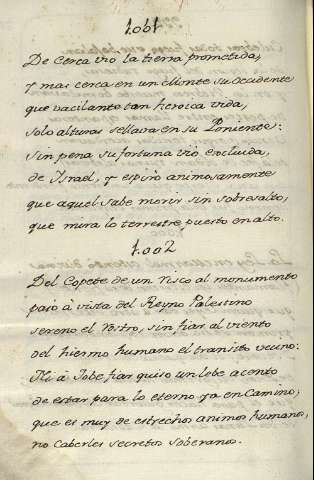 1.001
De cerca vio la tierra prometida,
y mas cerca en un Monte su occidente
que vacilante tan heroica vida,
solo alturas sellava en su Poniente:
sin pena su fortuna vio excluida,
de Israel, y espirò animosamente
que aquel sabe morir sin sobresalto,
que mira lo terrestre puesto en alto.
1.002
Del Copete de un risco al monumento
pasò à vista del Reyno Palestino
sereno el rostro, sin fiar al viento
del hiermo humano el transito vecino:
Ni à Josue fiar quiso un lebe acento
de estar para lo eterno ya en Camino,
que es muy de estrechos animos humanos,
no Caberles secretos soberanos.